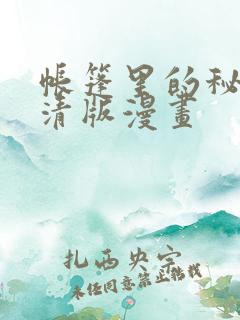 帐篷里的秘
清版漫畫
扎西央宗
未经同意禁止转载